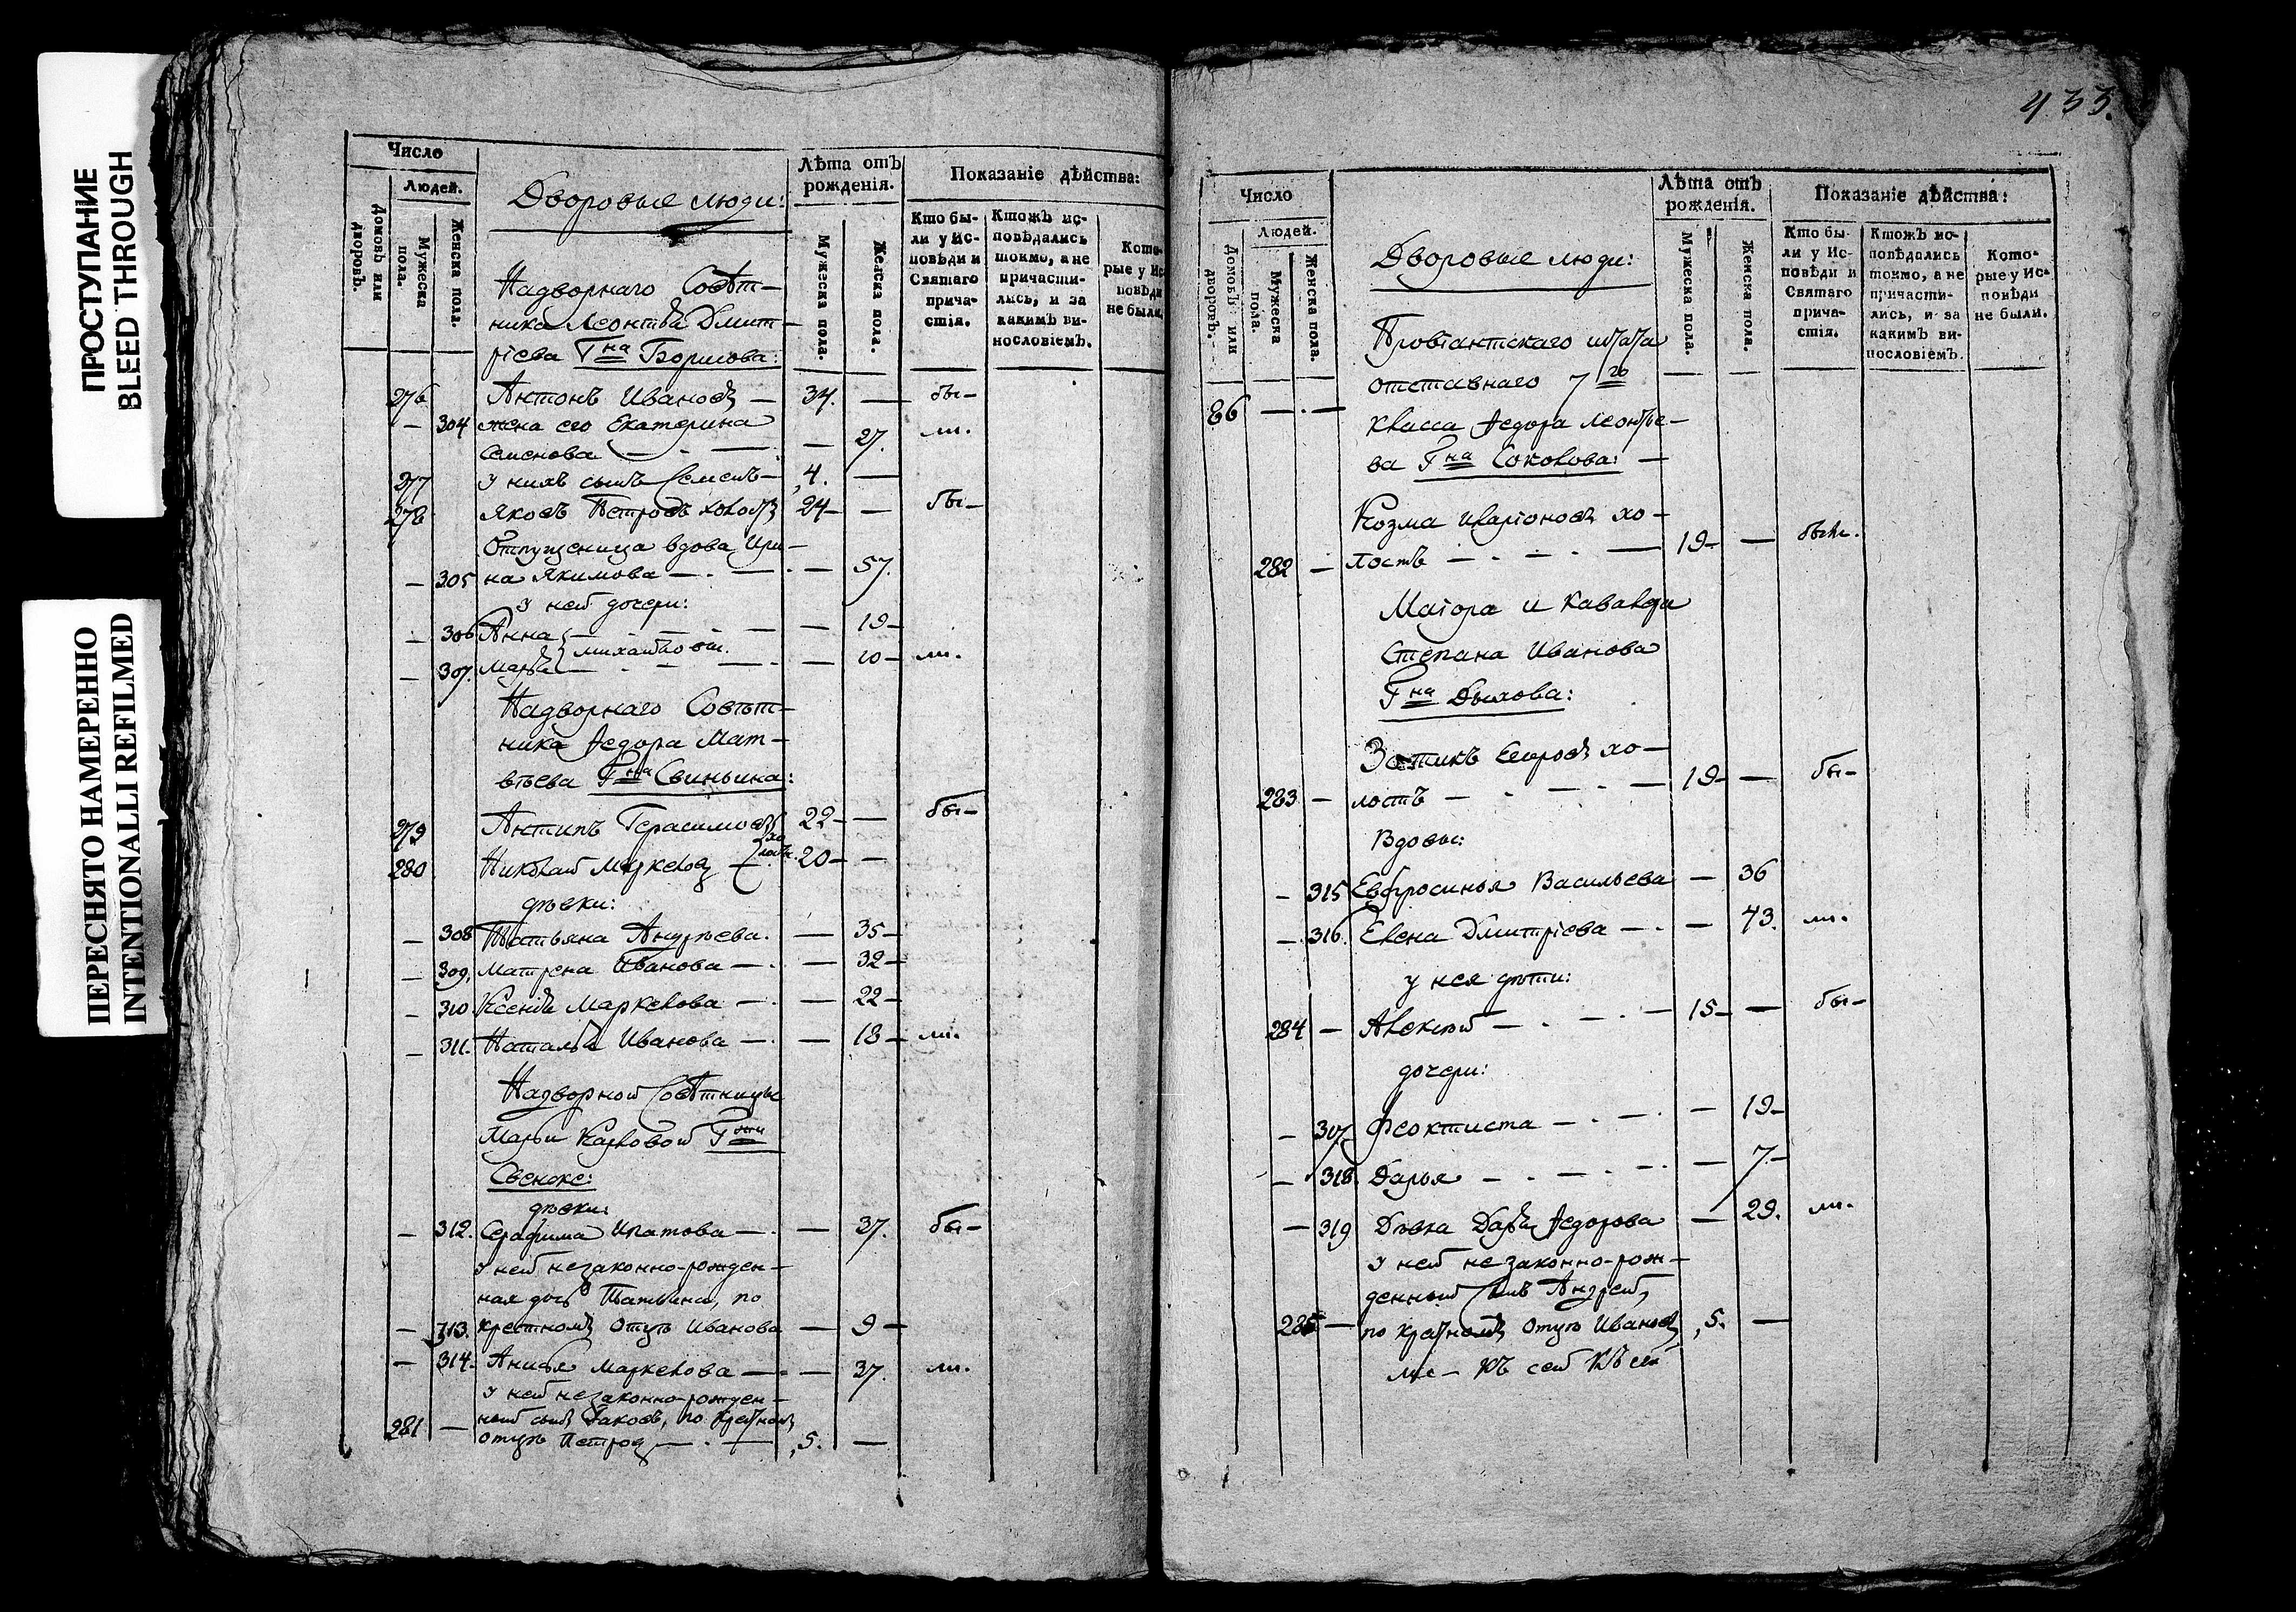 ПРОСТУПАНИЕ
BLEED THROUGH
ПЕРЕСНЯТО НАМЕРЕННО
INTENTIONALLI REFILMED
Число
Людей.
Домовъ или дворовъ.
Мужеска пола.
Женска пола.
Дворовые люди:
Лѣта отъ рожденія.
Мужеска пола.
Женска пола.
Показаніе дѣйства:
Кто бы-
ли у Ис-
повѣди и
Святаго
прича-
стія.
Ктожъ ис-
повѣдались
токмо, а не
причасти-
лись, и за
какимъ ви-
нословіемъ.
Кото-
рые у Ис-
повѣди
не были.
Надворнаго Совѣт-
ника Леонтья Дмит-
ріева Гна
276 Антонъ Ивановъ — 34. — бы-
— 304 жена его Екатерина ли.
Семенова — — 27.
277 у нихъ сынъ Семенъ — 4. —
278 Яковъ Петровъ холостъ 24 — — бы-
Отпущеница вдова Ири-
— 305 на Якимова — — 57.
у ней дочери:
— 306 Анна — — 19 —
Михайловы.
— 307. Марья — — 10 — ли.
Надворнаго Совѣт-
ника Федора Мат-
вѣева Гна Свиньина:
279 Антипъ Герасимовъ 22 — — бы-
хо
лосты.
280 Николай Маркеловъ 20 — —
дѣвки:
— 308 Татьяна Андреева. — 35 —
— 309. Матрена Иванова — — 32 —
— 310 Ксенія Маркелова — — 22 —
— 311. Наталья Иванова — — 18 — ли.
Надворной Совѣтницы
Марьи Карловой Гжи
дѣвки:
— 312. Серафима Ипатова — — 37. бы-
у ней незаконно-рожден-
ная дочь Татьяна, по
— 313. крестномъ отцѣ Иванова — 9 —
— 314. Анисья Маркелова — — 37. ли.
у ней незаконно-рожден-
ный сынъ Иаковъ, по крестномъ
281 — отцѣ Петровъ — 5. —
433.
Число
Людей.
Домовъ или дворовъ.
Мужеска пола.
Женска пола.
Дворовые люди:
Лѣта отъ рожденія.
Мужеска пола.
Женска пола.
Показаніе дѣйства:
Кто бы-
ли у Ис-
повѣди и
Святаго
прича-
стія.
Ктожъ ис-
повѣдались
токмо, а не
причасти-
лись, и за
какимъ ви-
нословіемъ.
Кото-
рые у Ис-
повѣди
не были.
Провіантскаго штата
отставнаго 7го
86 — — класса Федора Леонтье-
ва Гна Соколова: —
Козма Иларіоновъ хо-
282 — лостъ — 19 — — были.
Маіора и Кавалера
Степана Иванова
Гна Дылова:
Зотикъ Егоровъ хо-
283 — лостъ — 19 — — бы-
Вдовы:
— 315 Евфросинья Васильева — 36
— 316. Елена Дмитріева — — 43. ли.
у нея дѣти:
284 — Алексѣй — 15 — — бы-
дочери:
— 307 Феоктиста — — 19 —
— 318. Дарья — — 7. —
— 319 Дѣвка Дарья Федорова — 29. ли.
у ней незаконно-рож-
денный сынъ Андрей,
285 — по крестномъ отцѣ Ивановъ 5. —